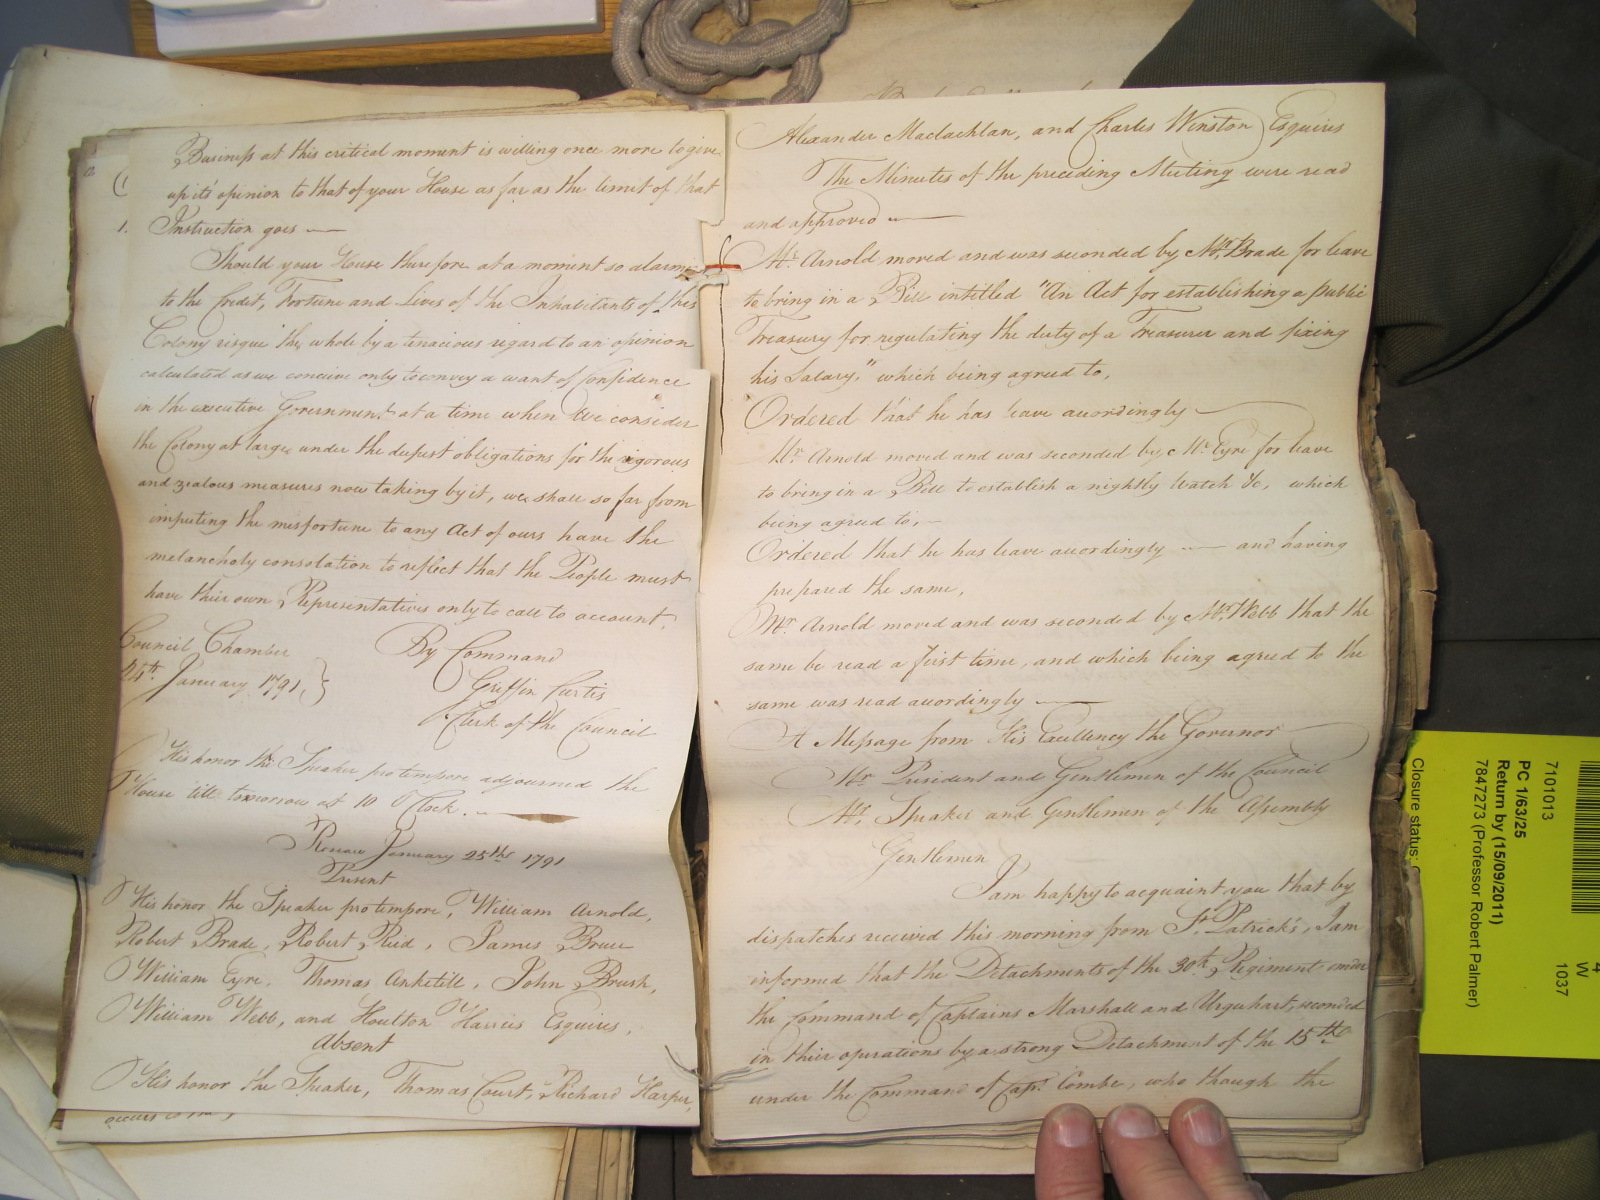 Business at this critical moment is willing once more to give
up it's opinion to that of your House as far as the limit of that
Instruction goes —
Should your House therefore at a moment so alarming
to the Credit, Fortune and Lives of the Inhabitants of this
Colony risque the whole by a tenacious regard to an opinion
calculated as we conceive only to convey a want of Confidence
in the executive Government at a time when We consider
the Colony at large under the deepest obligations for the vigorous
and zealous measures now taking by it, we shall so far from
imputing the misfortune to any Act of ours have the
melancholy consolation to reflect that the People must
have their own Representatives only to call to account.
Council Chamber
24th January 1791,}
By Command
Griffin Curtis
Clerk of the Council
His honor the Speaker pro tempore adjourned the
House till tomorrow at 10 O'Clock. —
Roseau January 25th 1791
Present
His honor the Speaker pro tempore, William Arnold,
Robert Brade, Robert Reid, James Bruce
William Eyre, Thomas Anketill, John Brush,
William Webb, and Houlton Harries Esquires,
Absent
His honor the Speaker, Thomas Court, Richard Harper,
occurs to
Alexander Maclachlan, and Charles Winston Esquires
The Minutes of the preceding Meeting were read
and approved —
Mr. Arnold moved and was seconded by Mr. Brade for leave
to bring in a Bill intitled "An Act for establishing a public
Treasury for regulating the duty of a Treasurer and fixing
his Salary," which being agreed to,
Ordered that he has leave accordingly —
Mr. Arnold moved and was seconded by Mr. Eyre for leave
to bring in a Bill to establish a nightly Watch &c, which
being agreed to, —
Ordered that he has leave accordingly — and having
prepared the same,
Mr. Arnold moved and was seconded by Mr. Webb that the
same be read a first time, and which being agreed to the
same was read accordingly —
A Message from His Excellency the Governor
Mr. President and Gentlemen of the Council
Mr. Speaker and Gentlemen of the Assembly
Gentlemen
I am happy to acquaint you that by
dispatches received this morning from St. Patrick's, I am
informed that the Detachments of the 30th Regiment under
the Command of Captains Marshall and Urquhart, seconded
in their operations by a strong Detachment of the 15th
under the Command of Capt. Combe, who though the
7101013
PC 1/63/25
Return by (15/09/2011)
7847273 (Professor Robert Palmer)
Closure status:
4
W
1037